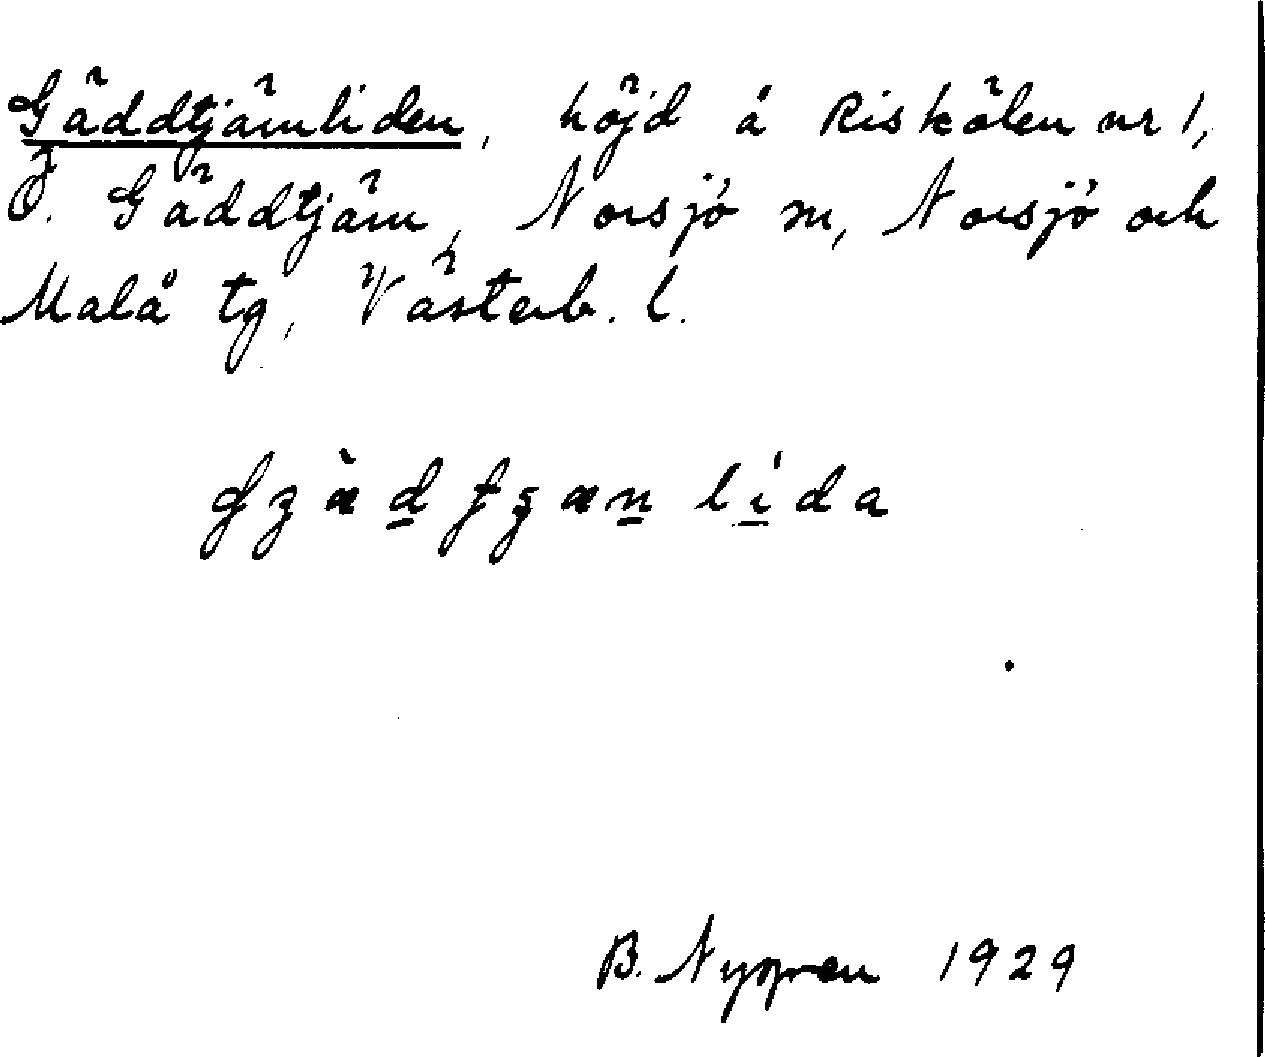 Gäddtjärnliden, höjd å Riskölen nr 1,
Ö. Gäddtjärn, Norsjö sn, Norsjö och
Malå tg, Västerb. l.
B. Nygren 1929